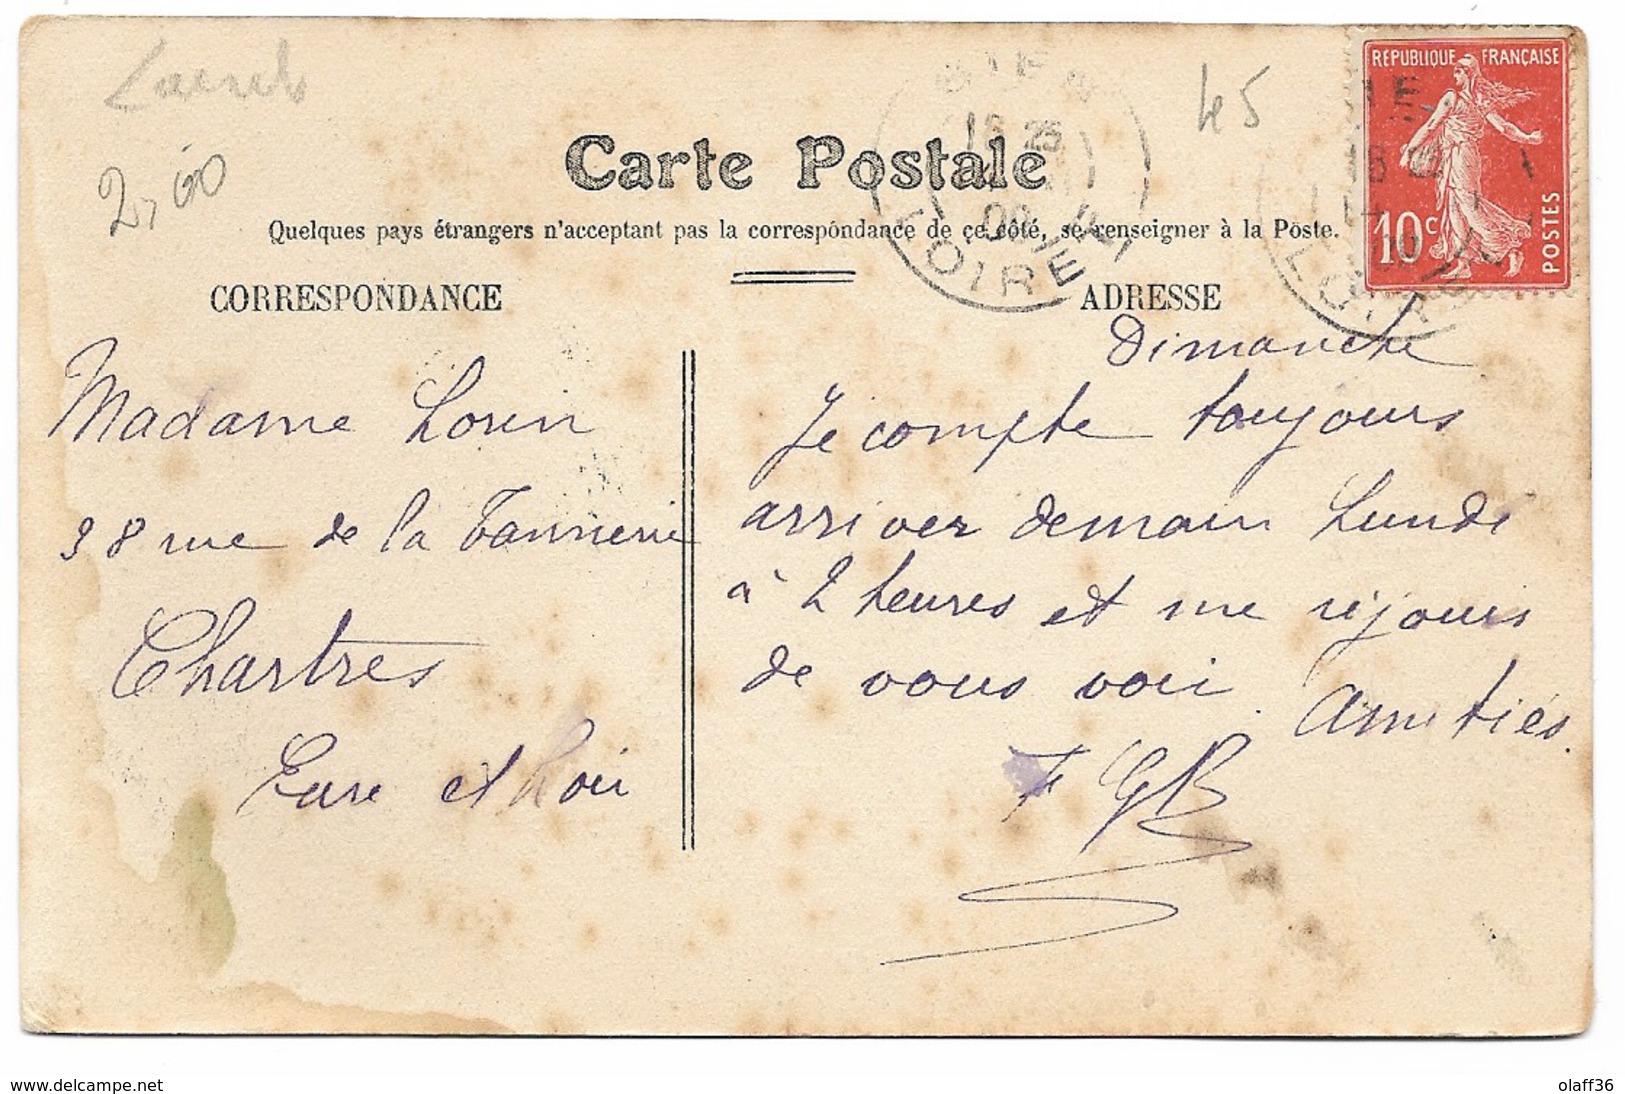 2,00
45
RÉPUBLIQUE FRANÇAISE
10c
POSTES
GIEN
16 25
LOIRET
Carte Postale
Quelques pays étrangers n'acceptant pas la correspondance de ce côté, se renseigner à la Poste.
CORRESPONDANCE
ADRESSE
Madame Lorin
38 rue de la Tannerie
Chartres
Eure et Loir
Dimanche
Je compte toujours
arriver demain Lundi
à 2 heures et me réjouis
de vous voir. Amitiés.
F GB
www.delcampe.net
olaff36